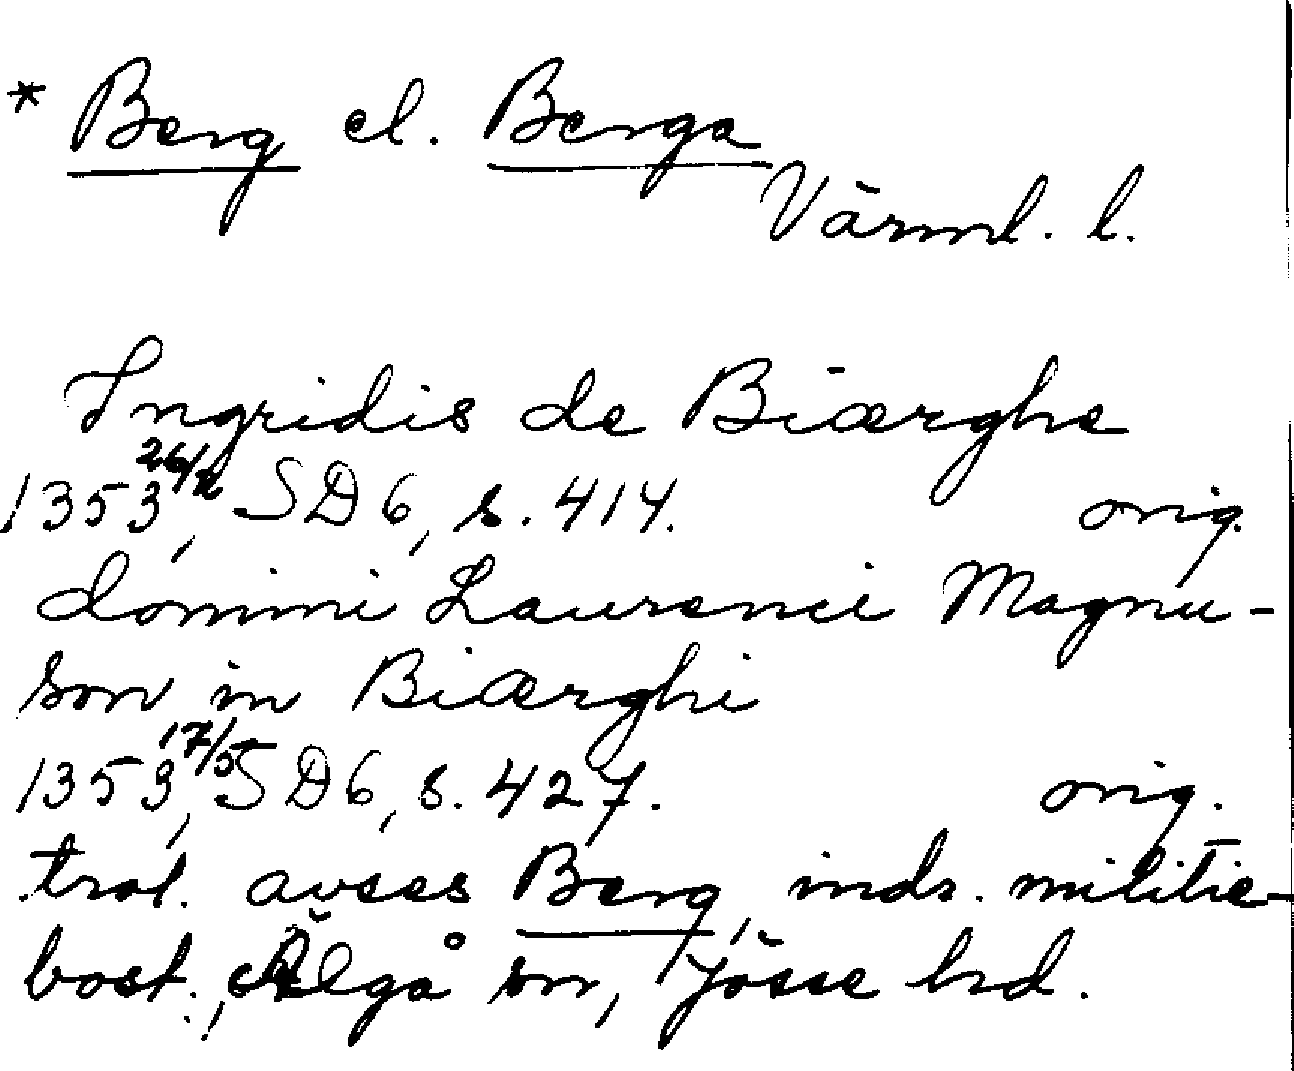 * Berg el. Berga
Värml. l.
Ingridis de Biærghe
1353 26/2, SD 6, s. 414. orig.
domini Laurencii Magnu-
son in Biærghi
1353 17/5, SD 6, s. 427. orig.
trol. avses Berg, indr. militie-
bost., Älgå sn, Jösse hd.